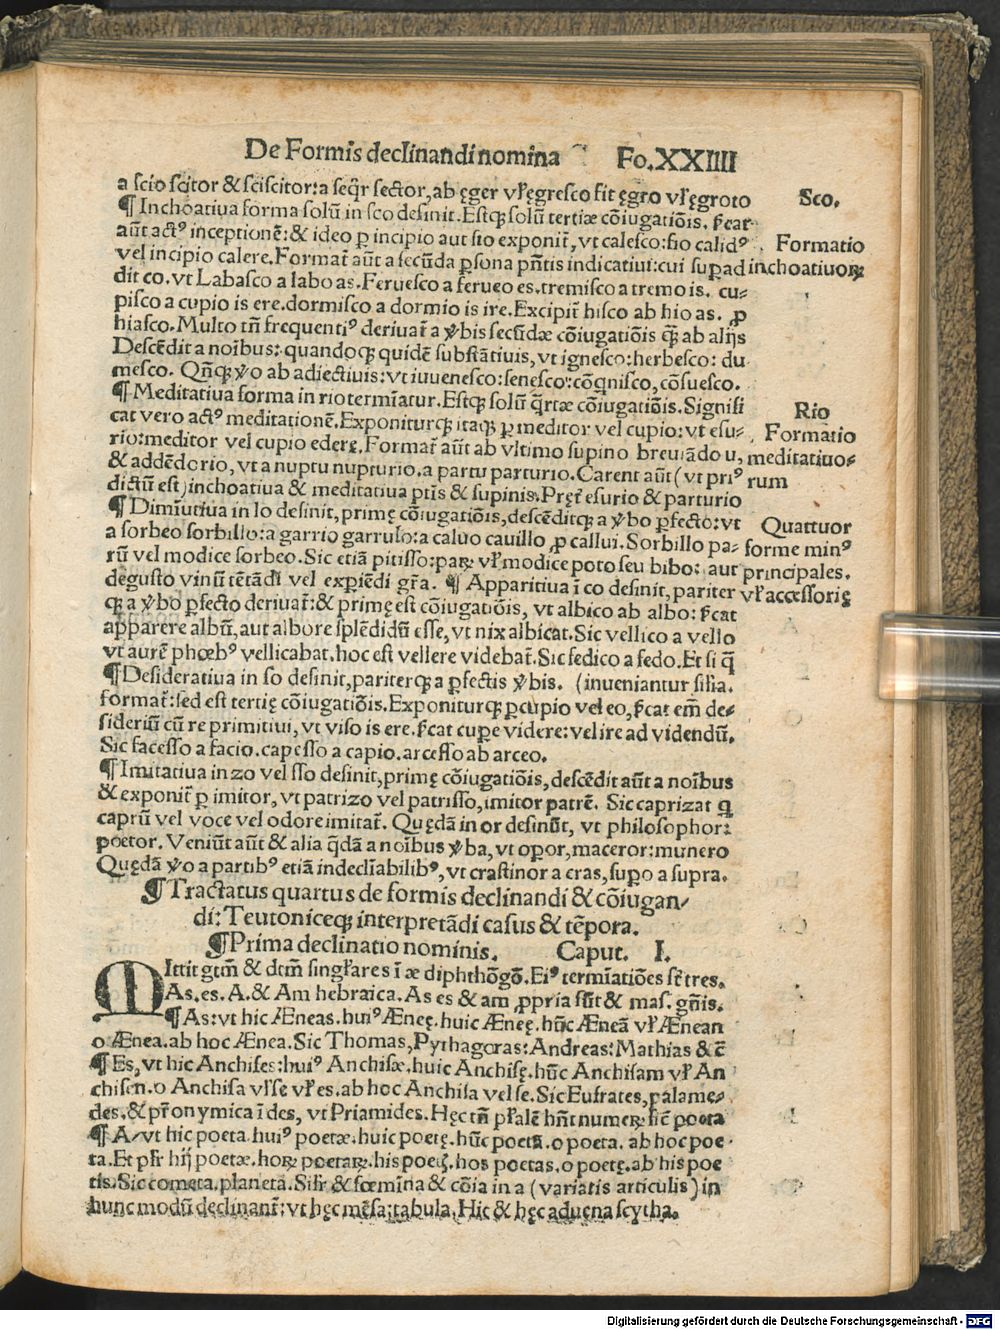 De Formis declinandi nomina Fo.XXIIII
a scio scitor & sciscitor: a seqr̃ sector, ab ęger vł ęgresco fit ęgro vł ęgroto
Sco.
¶ Inchoatiua forma solũ in sco desinit. Estq; solũ tertiæ cõiugatiõis. st̃cat
aũt actꝰ inceptionẽ: & ideo p incipio aut fio exponit̃, vt calesco: fio calidꝰ
Formatio
vel incipio calere. Format̃ aũt a secũda psona pñtis indicatiui: cui supad
inchoatiuoꝝ
dit co. vt Labasco a labo as. Feruesco a ferueo es. tremisco a tremo is. cu-
pisco a cupio is ere. dormisco a dormio is ire. Excipit̃ hisco ab hio as. ꝓ
hiasco. Multo tñ frequentiꝰ deriuat̃ a ỽbis secũdæ cõiugatiõis q̃ȝ ab alijs
Descẽdit a noĩbus: quandoq; quidẽ substãtiuis, vt ignesco: herbesco: du
mesco. Qñq; ỽo ab adiectiuis: vt iuuenesco: senesco: cõqnisco, cõsuesco.
¶ Meditatiua forma in rio termĩatur. Estq; solũ q̃rtæ cõiugatiõis. Signifi
Rio
cat vero actꝰ meditationẽ. Exponiturq; itaq; p meditor vel cupio: vt esu-
Formatio
rio: meditor vel cupio edere. Format̃ aũt ab vltimo supino breuiãdo u,
meditatiuo-
& addẽdo rio, vt a nuptu nupturio. a partu parturio. Carent aũt (vt priꝰ
rum
dictũ est) inchoatiua & meditatiua ptis & supinis. Pręt̃ esurio & parturio
¶ Dimĩutiua in lo desinit, primę cõiugatiõis, descẽditq; a ỽbo pfecto: vt
Quattuor
a sorbeo sorbillo: a garrio garrulo: a caluo cauillo ꝓ callui. Sorbillo pa-
forme minꝰ
rũ vel modice sorbeo. Sic etiã pitisso: paꝝ vł modice poto seu bibo: aut
principales.
degusto vinũ tẽtãdi vel expiẽdi gr̃a. ¶ Apparitiua ĩ co desinit, pariter
vł accessorię
q; a ỽbo pfecto deriuat̃: & primę est cõiugatiõis, vt albico ab albo: st̃cat
apparere albũ, aut albore splẽdidũ esse, vt nix albicat. Sic vellico a vello
vt aurẽ phœbꝰ vellicabat. hoc est vellere videbat̃. Sic fedico a fedo. Et si q̃
¶ Desideratiua in so desinit, pariterq; a pfectis ỽbis. (inueniantur silia.
format̃: sed est tertię cõiugatiõis. Exponiturq; p cupio vel eo, st̃cat em̃ de-
sideriũ cũ re primitiui, vt viso is ere. st̃cat cupe videre: vel ire ad videndũ.
Sic facesso a facio. capesso a capio. arcesso ab arceo.
¶ Imitatiua in zo vel sso desinit, primę cõiugatiõis, descẽdit aũt a noĩbus
& exponit̃ p imitor, vt patrizo vel patrisso, imitor patrẽ. Sic caprizat q
caprũ vel voce vel odore imitat̃. Quędã in or desinũt, vt philosophor:
poetor. Veniũt aũt & alia q̃dã a noĩbus ỽba, vt opor, maceror: munero
Quędã ỽo a partibꝰ etiã indeclĩabilibꝰ, vt crastinor a cras, supo a supra.
¶ Tractatus quartus de formis declinandi & cõiugan-
di: Teutoniceq; interpretãdi casus & tẽpora.
¶ Prima declinatio nominis. Caput. I.
MIttit gtm̃ & dtm̃ singłares ĩ æ diphthõgõ. Eiꝰ termĩatiões st̃ tres.
As. es. A. & Am hebraica. As es & am ꝓpria sũt & mas. gñis.
¶ As: vt hic Æneas. huiꝰ Ænęę. huic Ænęę. hũc Æneã vł Ænean
o Ænea. ab hoc Ænea. Sic Thomas, Pythagoras: Andreas: Mathias & c̃
¶ Es, vt hic Anchises: huiꝰ Anchisæ. huic Anchisę. hũc Anchisam vł An
chisen. o Anchisa vł se vł es. ab hoc Anchisa vel se. Sic Eufrates, palame-
des. & pr̃onymica ĩ des, vt Priamides. Hęc tñ płalẽ hñt numeꝝ sic̃ poeta
¶ A, vt hic poeta. huiꝰ poetæ. huic poetę. hũc poetã. o poeta. ab hoc poe-
ta. Et płr hij poetæ. hoꝝ poetaꝝ. his poet̃. hos poetas. o poetę. ab his poe
tis. Sic cometa. planeta. Silr & fœmĩna & cõia in a (variatis articulis) in
hunc modũ declinant̃: vt hęc mẽsa: tabula. Hic & hęc aduena scytha.
Digitalisierung gefördert durch die Deutsche Forschungsgemeinschaft - DFG